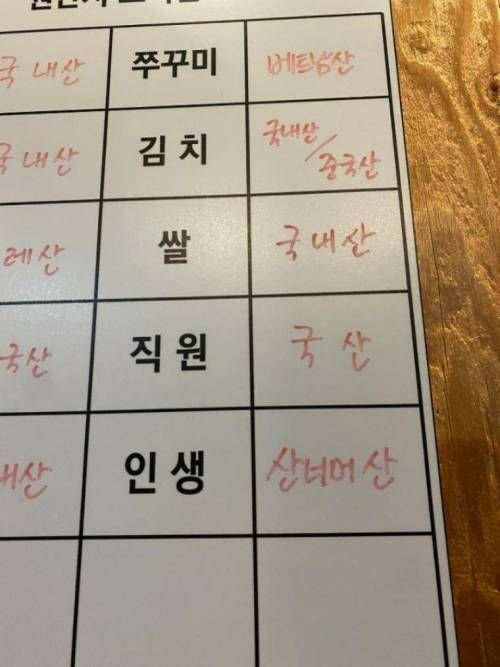 원산지
국내산 쭈꾸미 베트남산
국내산 김치 국내산/
중국산
레산 쌀 국내산
국산 직원 국산
내산 인생 산너머 산